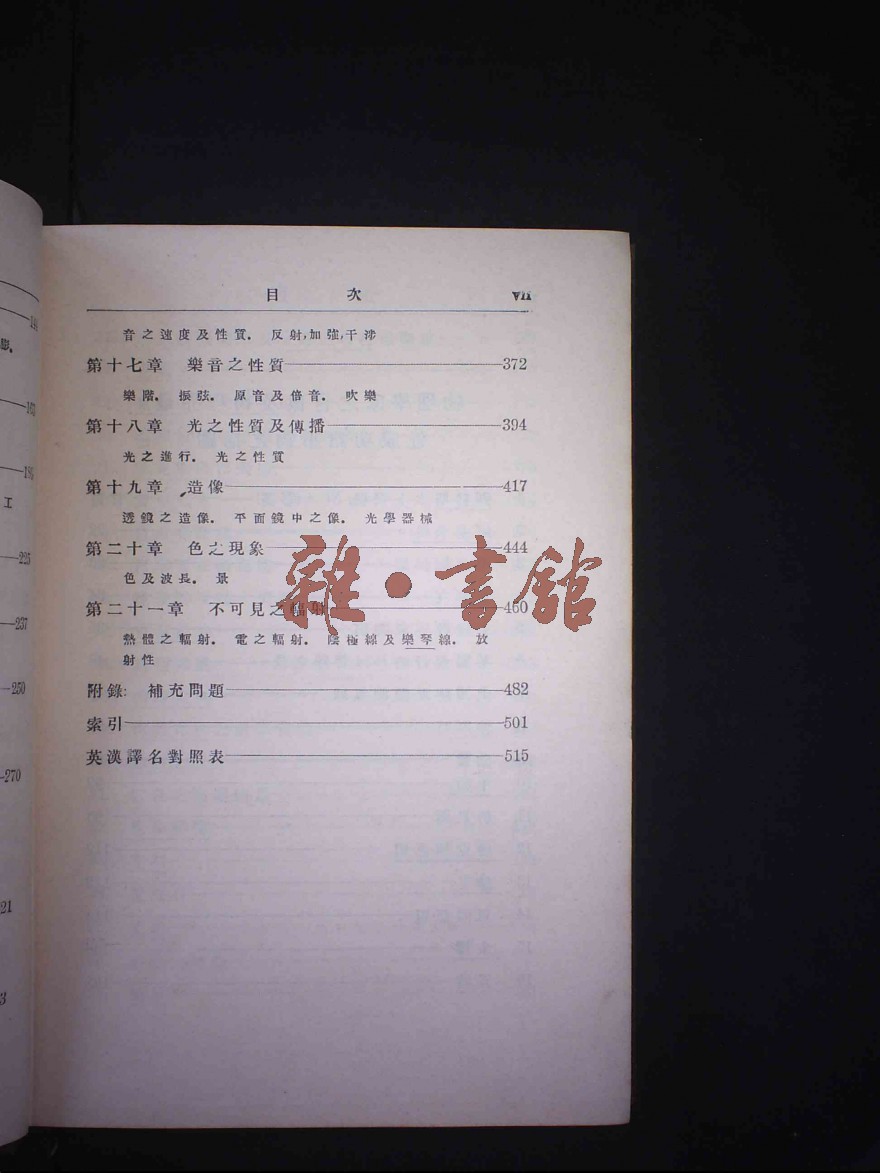 目 次 VII
音之速度及性質. 反射,加強,干涉
第十七章 樂音之性質 372
樂階. 振弦. 原音及倍音. 吹樂
第十八章 光之性質及傳播 394
光之進行. 光之性質
第十九章 造像 417
透鏡之造像. 平面鏡中之像. 光學器械
第二十章 色之現象 444
色及波長. 景
第二十一章 不可見之輻射 460
熱體之輻射. 電之輻射. 陰極線及樂琴線. 放
射性
附錄: 補充問題 482
索引 501
英漢譯名對照表 515
雜·書館
工
225
237
250
270
21
3